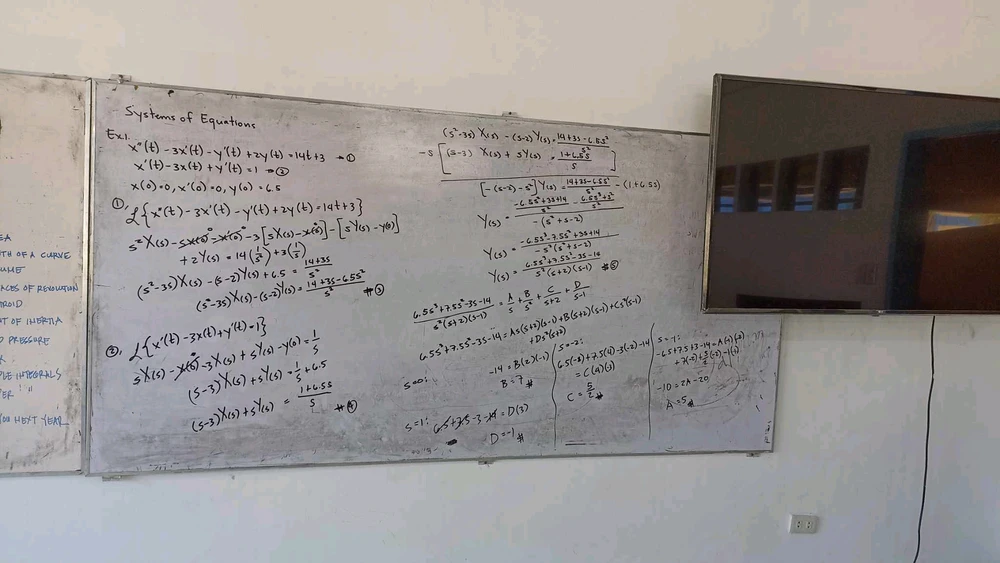 EA
TH OF A CURVE
UME
ACES OF REVOLUTION
ROID
T OF INERTIA
D PRESSURE
K
PLE INTEGRALS
ER " "
YOU NEXT YEAR
Systems of Equations
Ex1.
x"(t) - 3x'(t) - y'(t) + 2y(t) = 14t + 3 → ①
x'(t) - 3x(t) + y'(t) = 1 → ②
x(0) = 0, x'(0) = 0, y(0) = 6.5
① ℒ{x"(t) - 3x'(t) - y'(t) + 2y(t) = 14t + 3}
s²X(s) - sx(0)⁰ - x'(0)⁰ - 3[sX(s) - x(0)⁰] - [sY(s) - y(0)]
+ 2Y(s) = 14(1/s²) + 3(1/s)
(s² - 3s)X(s) - (s-2)Y(s) + 6.5 = 14+3s/s²
(s² - 3s)X(s) - (s-2)Y(s) = 14+3s-6.5s²/s² #③
② ℒ{x'(t) - 3x(t) + y'(t) = 1}
sX(s) - x(0)⁰ - 3X(s) + sY(s) - y(0) = 1/s
(s-3)X(s) + sY(s) = 1/s + 6.5
(s-3)X(s) + sY(s) = 1+6.5s/s #④
(s²-3s)X(s) - (s-2)Y(s) = 14+3s-6.5s²/s²
-s[(s-3)X(s) + sY(s) = 1+6.5s/s]
[-(s-2)-s²]Y(s) = 14+3s-6.5s²/s² - (1+6.5s)
Y(s) = -6.5s²+3s+14/s² - 6.5s³+s²/s² / -(s²+s-2)
Y(s) = -6.5s³-7.5s²+3s+14/-s²(s²+s-2)
Y(s) = 6.5s³+7.5s²-3s-14/s²(s+2)(s-1) #⑤
6.5s³+7.5s²-3s-14/s²(s+2)(s-1) = A/s + B/s² + C/s+2 + D/s-1
6.5s³+7.5s²-3s-14 = As(s+2)(s-1) + B(s+2)(s-1) + Cs²(s-1)
+ Ds²(s+2)
s=0:
-14 = B(2)(-1)
B = 7 #
s=1: 6.5+7.5-3-14 = D(3)
D = -1 #
s=-2:
6.5(-8)+7.5(4)-3(-2)-14
= C(4)(-3)
C = 5/2 #
s=-1:
-6.5+7.5+3-14 = A(-1)(1)(-2)
-10 = 2A - 20
A = 5 #